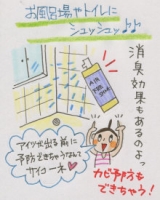 お風呂場やトイレに
シュッシュッ♪♪
消臭効果もあるのよっ
アイツが出る前に
予防できちゃうなんて
サイコー
カビ予防も
できちゃう!